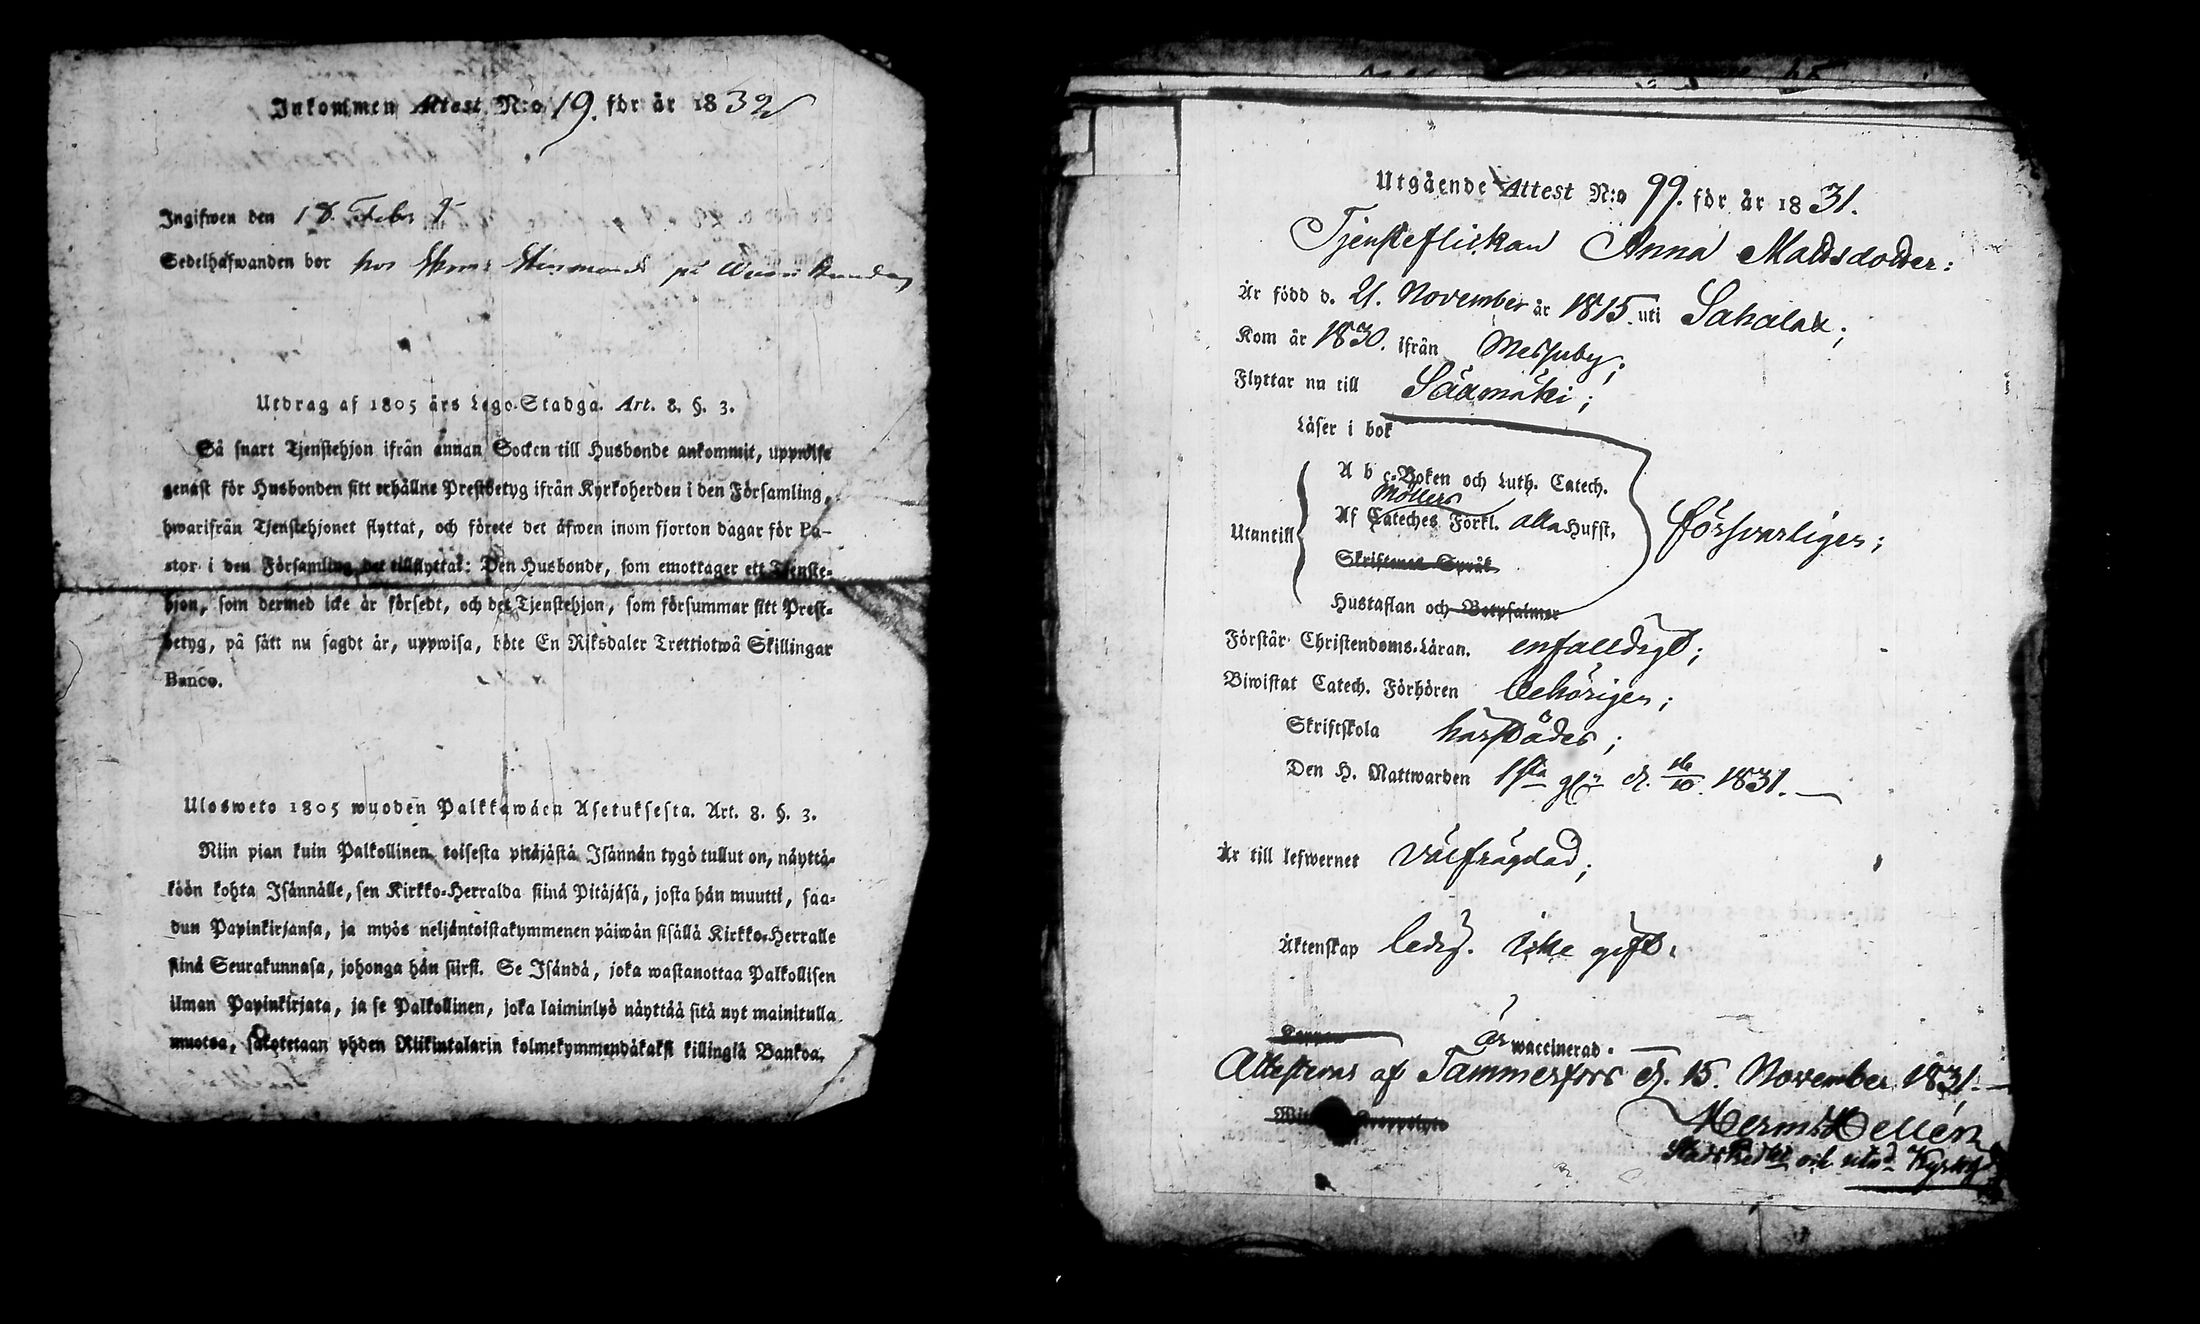 Inkommen Attest N:o 19. för år 1832
Ingifwen den 18 Febr
Sedelhafwanden bor hos på
Utdrag af 1805 års Lego-Stadga. Art. 8. §. 3.
Så snart Tjenstehjon ifrån annan Socken till Husbonde ankommit, uppwise
genast för Husbonden sitt erhållne Prestbetyg ifrån Kyrkoherden i den Församling,
hwarifrån Tjenstehjonet flyttat, och förete det äfwen inom fjorton dagar för Pa-
stor i den Församling det tillflyttat: Den Husbonde, som emottager ett Tjenste-
hjon, som dermed icke är försedt, och det Tjenstehjon, som försummar sitt Prest-
betyg, på sätt nu sagdt är, uppwisa, böte En Riksdaler Trettiotwå Skillingar
Banco.
Ulosweto 1805 wuoden Palkkawäen Asetuksesta. Art. 8. §. 3.
Niin pian kuin Palkollinen toisesta pitäjästä Isännän tygö tullut on, näyttä-
köön kohta Isännälle, sen Kirkko-Herralda siinä Pitäjäsä, josta hän muutti, saa-
dun Papinkirjansa, ja myös neljäntoistakymmenen päiwän sisällä Kirkko-Herralle
siinä Seurakunnasa, johonga hän siirst. Se Isändä, joka wastanottaa Palkollisen
ilman Papinkirjata, ja se Palkollinen, joka laiminlyö näyttää sitä nyt mainitulla
muotoa, sakotetaan yhden Riikintalarin kolmekymmendäkaksi killingiä Bankoa.
Utgående Attest N:o 99. för år 1831.
Tjensteflickan Anna Mattsdotter:
Är född d. 21. November år 1815. uti Sahalax;
Kom år 1830. ifrån Messuby;
Flyttar nu till Sääxmäki;
Läser i bok
A b c-Boken och Luth. Catech.
Möllers
Utantill Af Cateches Förkl. alla Hufst. försvarligen;
Skriftenes Språk
Hustaflan och Botpsalmer
Förstår Christendoms-Läran. enfaldigt;
Biwistat Catech. Förhören behörigen;
Skriftskola härstädes;
Den H. Nattwarden 1sta g. d. 1831.
Är till lefwernet välfrägdad;
Äktenskap ledig. icke gift.
Koppor är waccinerad.
Attesteras af Tammerfors d. 15. November 1831.
Herm. Hellén